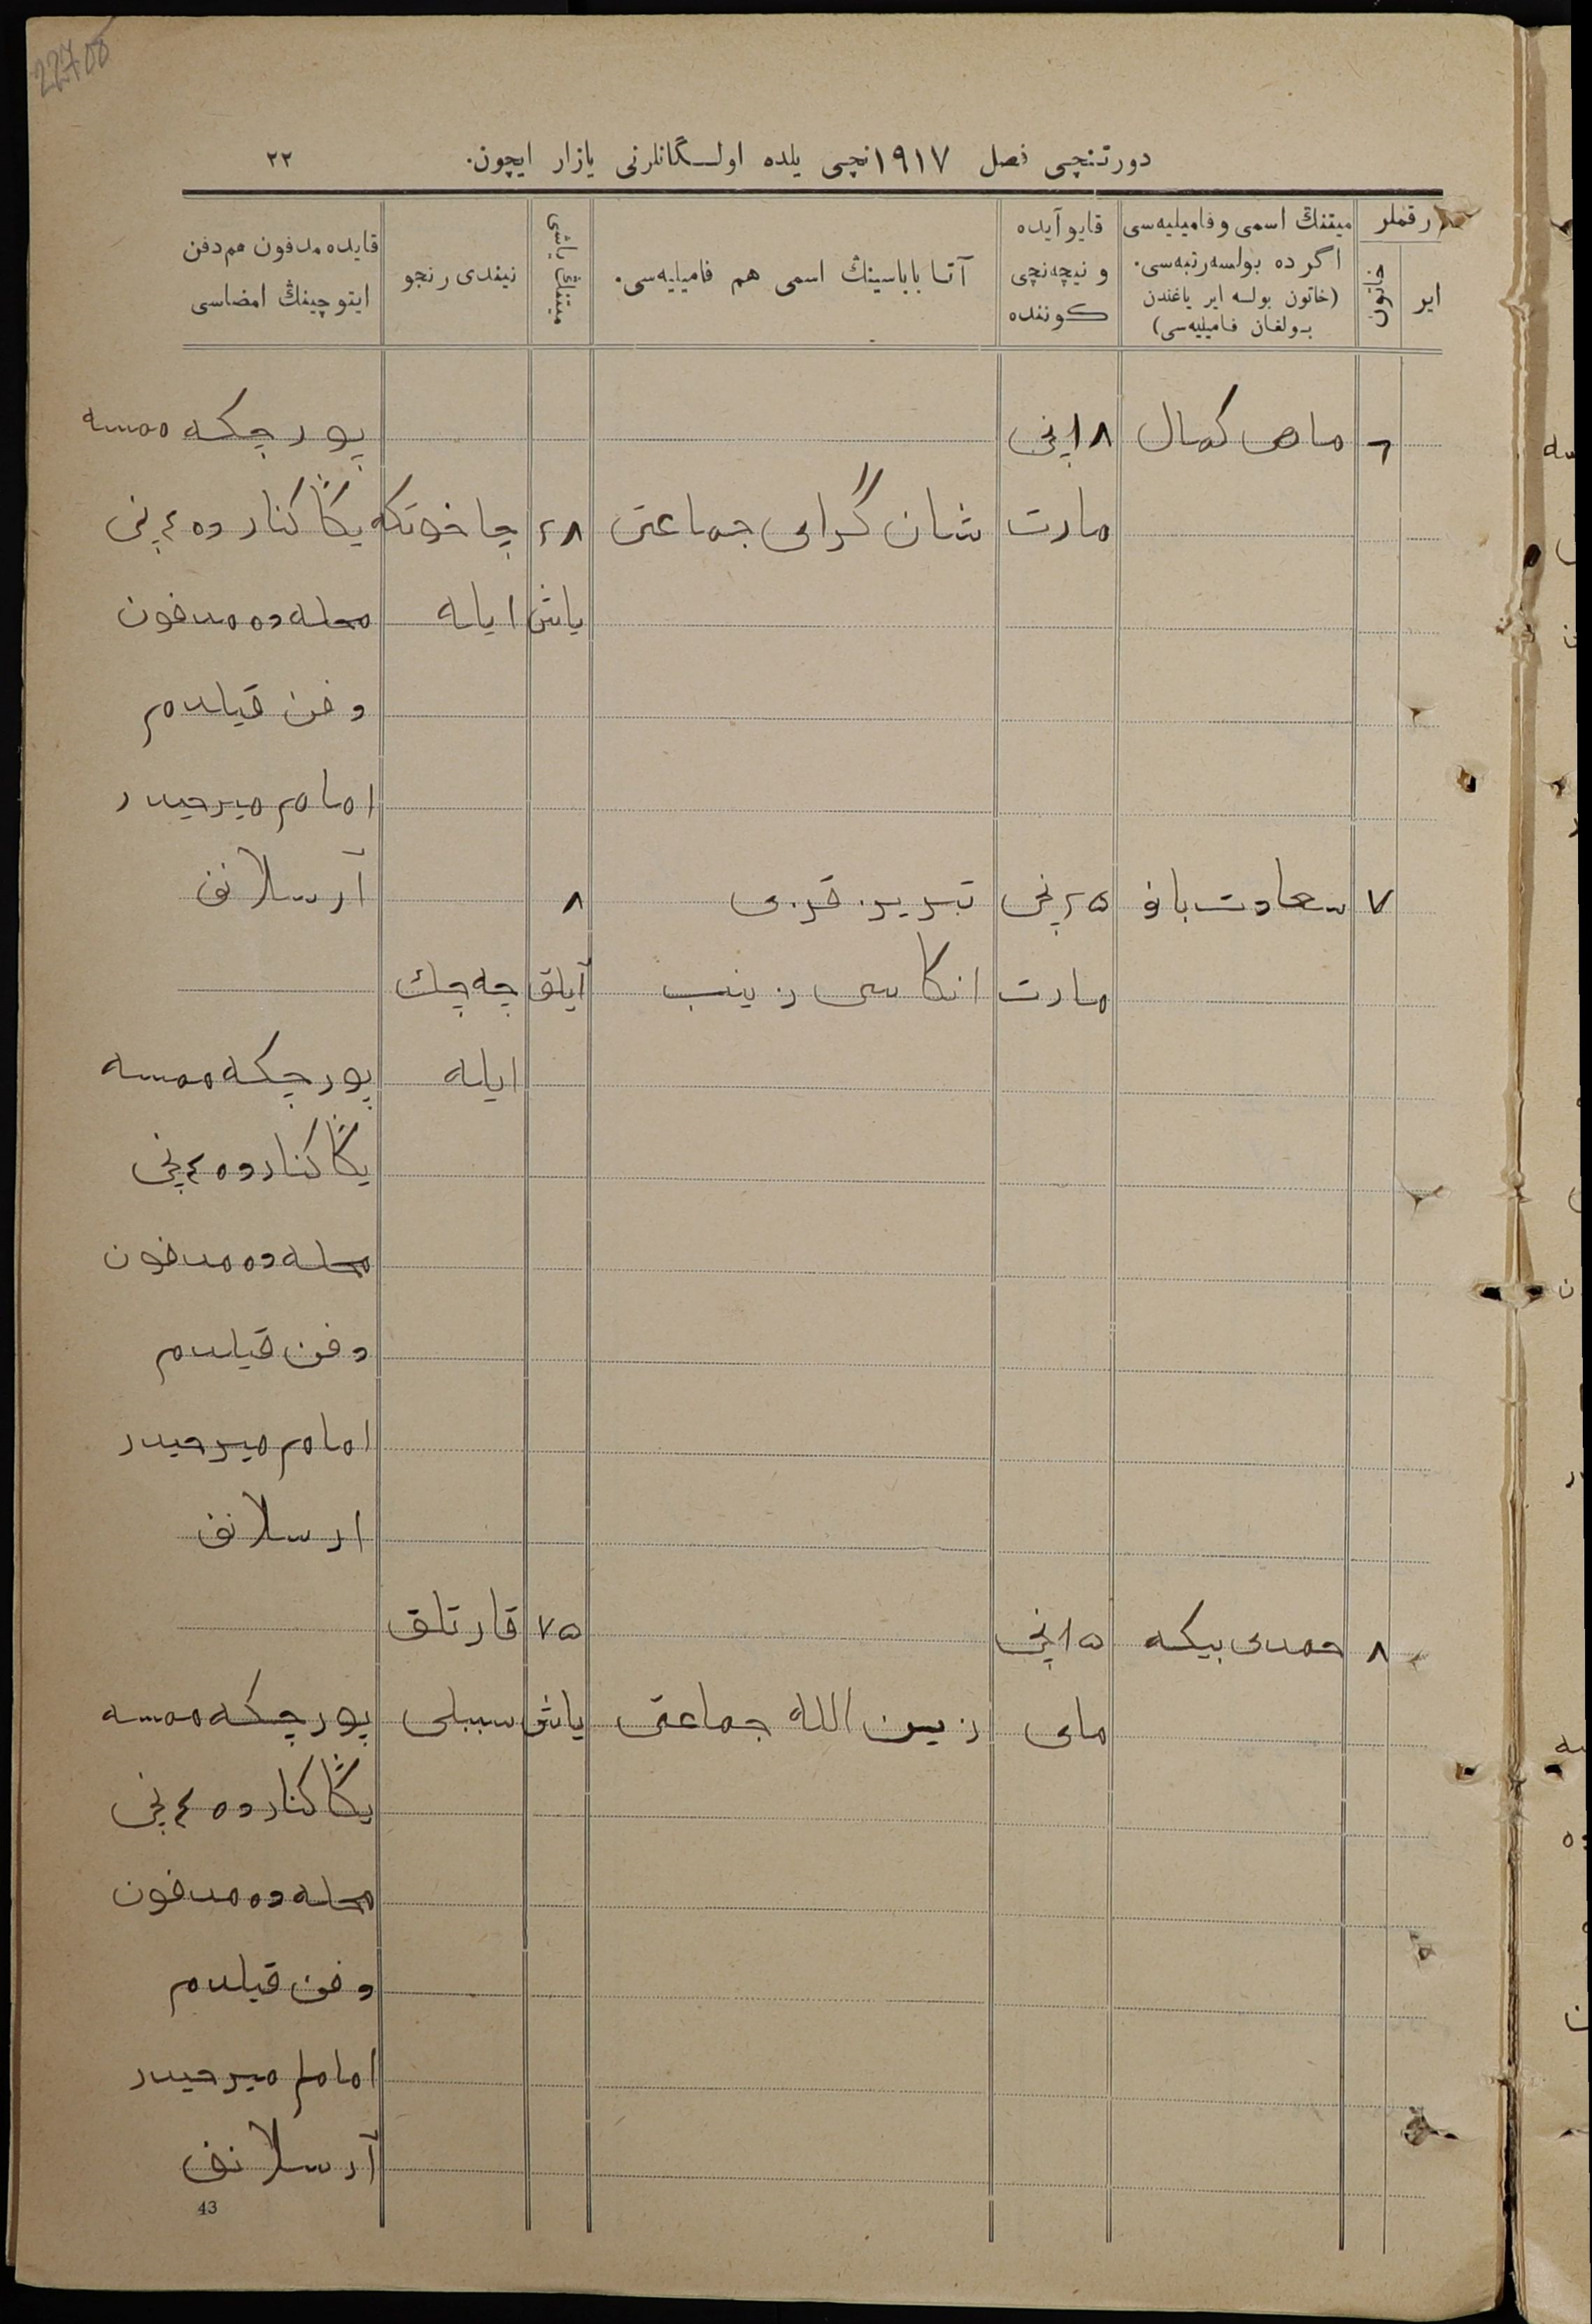 22700
دورتنچی فصل ۱۹۱۷نچی یلده اولـگانلرنی یازار ایچون. ۲۲
رقملر
ایر
خاتون
میتنڭ اسمی و فامیلیه‌سی
اگر ده بولسه رتبه‌سی.
(خاتون بولسه ایر یاغندن
بـولغان فـامیلیه‌سی)
قایو آیده
و نیچه‌نچی
کوننده
آتـا بابـاسینڭ اسمی هم فامیلیه‌سی.
میتنڭ یاشی
نیندی رنجو
قایده مدفون هم دفن
ایتوچینڭ امضاسی
۶ ماهی کمال ۱۸نچی پورچکه ممسه
مارت شان گرای جماعتی ۲۸ چاخوتکه یڭا کنارده ۴نچی
یاش ایله محله ده مدفون
دفن قیلدم
امام میرحیدر
۷ سعادت بانو ۲۵نچی تبریز قزی ۸ آرسلانف
مارت انکاسی زینب آیلق چه چك
ایله پورچکه ممسه
یڭا کنارده ۴نچی
محله ده مدفون
دفن قیلدم
امام میرحیدر
ارسلانف
۸ حمدی بیکه ۱۵نچی ۷۵ قارتلق
مای زین الله جماعتی یاش سببلی پورچکه ممسه
یڭا کنارده ۴نچی
محله ده مدفون
دفن قیلدم
امام میرحیدر
آرسلانف
43